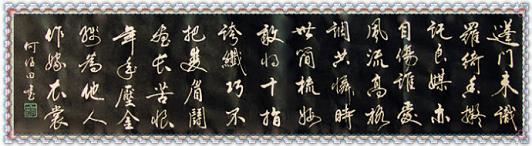 蓬門未識
羅綺香擬
託良媒亦
自傷誰愛
風流高格
調共憐時
世簡梳妝
敢將十指
誇纖巧不
把雙眉鬪
畫長苦恨
年年壓金
線為他人
作嫁衣裳